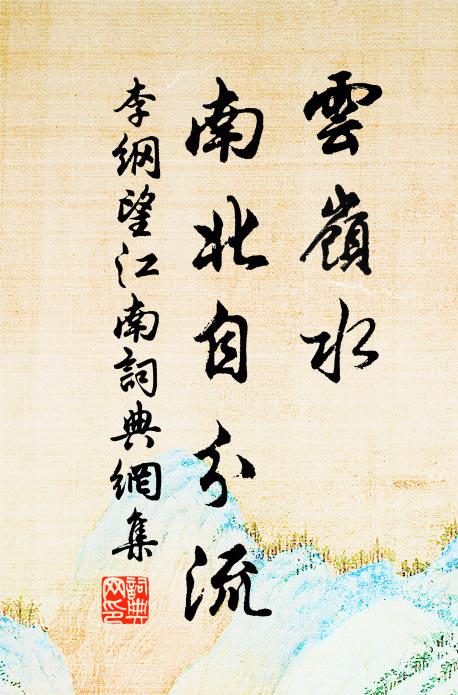 雲嶺水
南北自分流
李綱望江南詞典網集
詞典